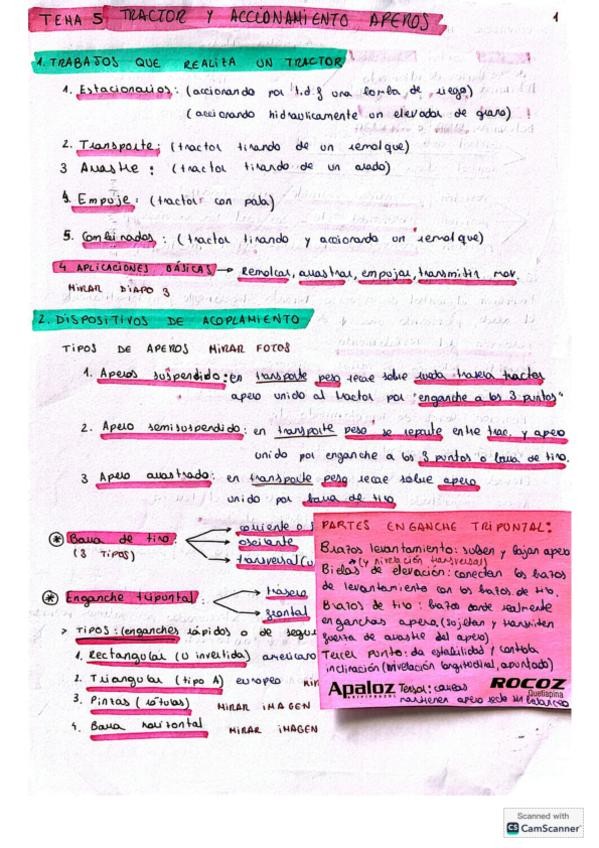 TEMA 5 TRACTOR Y ACCIONAMIENTO APEROS
1
1. TRABAJOS QUE REALIZA UN TRACTOR
1. Estacionarios: (accionando por t.d.f una bomba de riego)
(accionando hidraulicamente un elevador de grano)
2. Transporte: (tractor tirando de un remolque)
3 Arrastre: (tractor tirando de un arado)
4. Empuje: (tractor con pala)
5. Combinados: (tractor tirando y accionando un remolque)
4 APLICACIONES BÁSICAS → Remolcar, arrastrar, empujar, transmitir mov.
MIRAR DIAPO 3
2. DISPOSITIVOS DE ACOPLAMIENTO
TIPOS DE APEROS MIRAR FOTOS
1. Aperos suspendido: en transporte peso recae sobre rueda trasera tractor
apero unido al tractor por "enganche a los 3 puntos"
2. Apero semisuspendido: en transporte peso se reparte entre trac. y apero
unido por enganche a los 3 puntos o barra de tiro.
3 Apero arrastrado: en transporte peso recae sobre apero
unido por barra de tiro
* Barra de tiro:
(3 TIPOS)
corriente o
oscilante
transversal (u
* Enganche tripuntal:
trasero
frontal
> TIPOS: (enganches rápidos o de segu
1. Rectangular (U invertida) americano
2. Triangular (tipo A) europeo
3. Pinzas (rótulas) MIRAR IMAGEN
4. Barra horizontal MIRAR IMAGEN
PARTES ENGANCHE TRIPUNTAL:
Brazos levantamiento: suben y bajan apero
*(y nivelación transversal)
Bielas de elevación: conectan los brazos
de levantamiento con los brazos de tiro.
Brazos de tiro: brazos donde realmente
enganchas apero, (sujetan y transmiten
fuerza de arrastre del apero)
Tercer punto: da estabilidad y controla
inclinación (nivelación longitudinal, apuntado)
Apaloz
ROCOZ
Quetiapina
Tensor: cadenas
mantienen apero recto sin balanceo
Scanned with
CS CamScanner